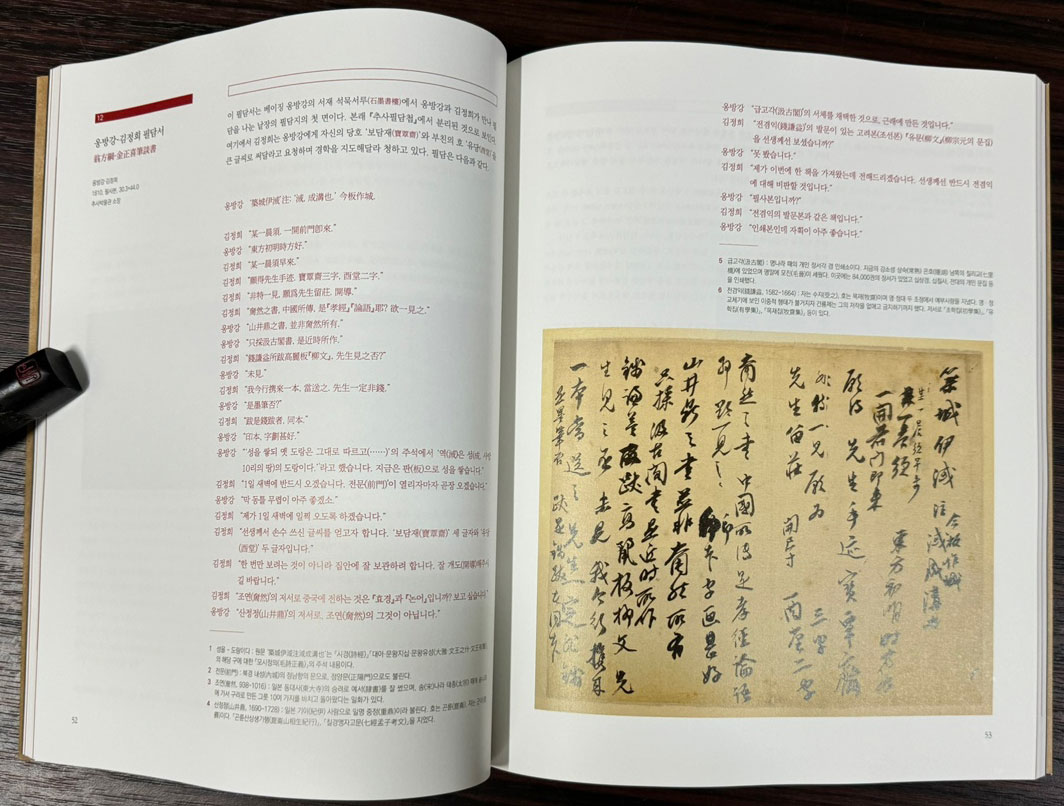 12
옹방강-김정희 필담서
翁方綱-金正喜筆談書
옹방강·김정희
1810, 필사본, 30.3×44.0
추사박물관 소장
이 필담서는 베이징 옹방강의 서재 석묵서루(石墨書樓)에서 옹방강과 김정희가 만나 필
담을 나눈 낱장의 필담지의 첫 면이다. 본래 『추사필담첩』에서 분리된 것으로 보인다.
여기에서 김정희는 옹방강에게 자신의 당호 '보담재(寶覃齋)'와 부친의 호 '유당(酉堂)'을
큰 글씨로 써달라고 요청하며 경학을 지도해달라 청하고 있다. 필담은 다음과 같다.
옹방강 '築城伊淢'注: '淢, 成溝也.' 今板作城.
김정희 "某一晨須, 一開前門卽來."
옹방강 "東方初明時方好."
김정희 "某一晨須早來."
김정희 "願得先生手迹, 寶覃齋三字, 酉堂二字."
김정희 "非特一見, 願爲先生留莊, 開導."
김정희 "奝然之書, 中國所傳, 是『孝經』『論語』耶? 欲一見之."
옹방강 "山井鼎之書, 並非奝然所有."
옹방강 "只採汲古閣書, 是近時所作."
김정희 "錢謙益所跋高麗板『柳文』, 先生見之否?"
옹방강 "未見."
김정희 "我今行携來一本, 當送之. 先生一定非錢."
옹방강 "是墨筆否?"
김정희 "跋是錢跋者, 同本."
옹방강 "印本, 字劃甚好."
옹방강 "'성을 쌓되 옛 도랑은 그대로 따르고(……)'의 주석에서 '역(淢)은 성(成, 사방
10리의 땅)의 도랑이다.'라고 했습니다. 지금은 판(板)으로 성을 쌓습니다."
김정희 "1일 새벽에 반드시 오겠습니다. 전문(前門)이 열리자마자 곧장 오겠습니다."
옹방강 "막 동틀 무렵이 아주 좋겠소."
김정희 "제가 1일 새벽에 일찍 오도록 하겠습니다."
김정희 "선생께서 손수 쓰신 글씨를 얻고자 합니다. '보담재(寶覃齋)' 세 글자와 '유당
(酉堂)' 두 글자입니다."
김정희 "한 번만 보려는 것이 아니라 집안에 잘 보관하려 합니다. 잘 개도(開導)해주시
길 바랍니다."
김정희 "조연(奝然)의 저서로 중국에 전하는 것은 『효경』과 『논어』입니까? 보고 싶습니다."
옹방강 "산정정(山井鼎)의 저서로, 조연(奝然)의 그것이 아닙니다."
1 성을 - 도랑이다 : 원문 '築城伊淢注淢成溝也'는 『시경(詩經)』, 「대아·문왕지십·문왕유성(大雅·文王之什·文王有聲)」
의 해당 구에 대한 『모시정의(毛詩正義)』의 주석 내용이다.
2 전문(前門) : 북경 내성(內城)의 정남향의 문으로, 정양문(正陽門)으로도 불린다.
3 조연(奝然, 938-1016) : 일본 동대사(東大寺)의 승려로 예서(隷書)를 잘 썼으며, 송(宋)나라 태종(太宗)
에 가서 구리로 만든 그릇 10여 가지를 바치고 돌아왔다는 일화가 있다.
4 산정정(山井鼎, 1690-1728) : 일본 기이(紀伊) 사람으로 일명 중정(重鼎)이라 불린다. 호는 곤륜(崑崙),
52
옹방강 "급고각(汲古閣)의 서체를 채택한 것으로, 근래에 만든 것입니다."
김정희 "전겸익(錢謙益)의 발문이 있는 고려본(조선본) 『유문(柳文)』(柳宗元의 문집)
을 선생께선 보셨습니까?"
옹방강 "못 봤습니다."
김정희 "제가 이번에 한 책을 가져왔는데 전해드리겠습니다. 선생께선 반드시 전겸익
에 대해 비판할 것입니다."
옹방강 "필사본입니까?"
김정희 "전겸익의 발문본과 같은 책입니다."
옹방강 "인쇄본인데 자획이 아주 좋습니다."
5 급고각(汲古閣) : 명나라 때의 개인 장서각 겸 인쇄소이다. 지금의 강소성 상숙(常熟) 곤호(崑湖) 남쪽의 칠리교(七星
橋)에 있었으며 명말에 모진(毛晉)이 세웠다. 이곳에는 84,000권의 장서가 있었고 십삼경, 십칠사, 전대의 개인 문집 등
을 인쇄했다.
6 전겸익(錢謙益, 1582-1664) : 자는 수지(受之), 호는 목재(牧齋)이며 명·청대 두 조정에서 예부시랑을 지냈다. 명·청
교체기에 보인 이중적 행태가 불거지자 건륭제는 그의 저작을 없애고 금지하기까지 했다. 저서로 『초학집(初學集)』, 『유
학집(有學集)』, 『목재집(牧齋集)』 등이 있다.
築城伊淢注淢成溝也
今板作城
一開前門卽來
東方初明時方好
願得 先生手迹 寶覃齋 三字
酉堂二字
非特一見願爲
先生留莊 開导
奝然之書 中國所傳是孝經論語
耶 欲一見之
山井鼎之書並非奝然所有
只採汲古閣書是近時所作
錢謙益所跋高麗板柳文 先
生見之否 未見 我今行携來
一本當送之 先生一定非錢
是墨筆否 跋是錢跋者同本
印本字画甚好
53